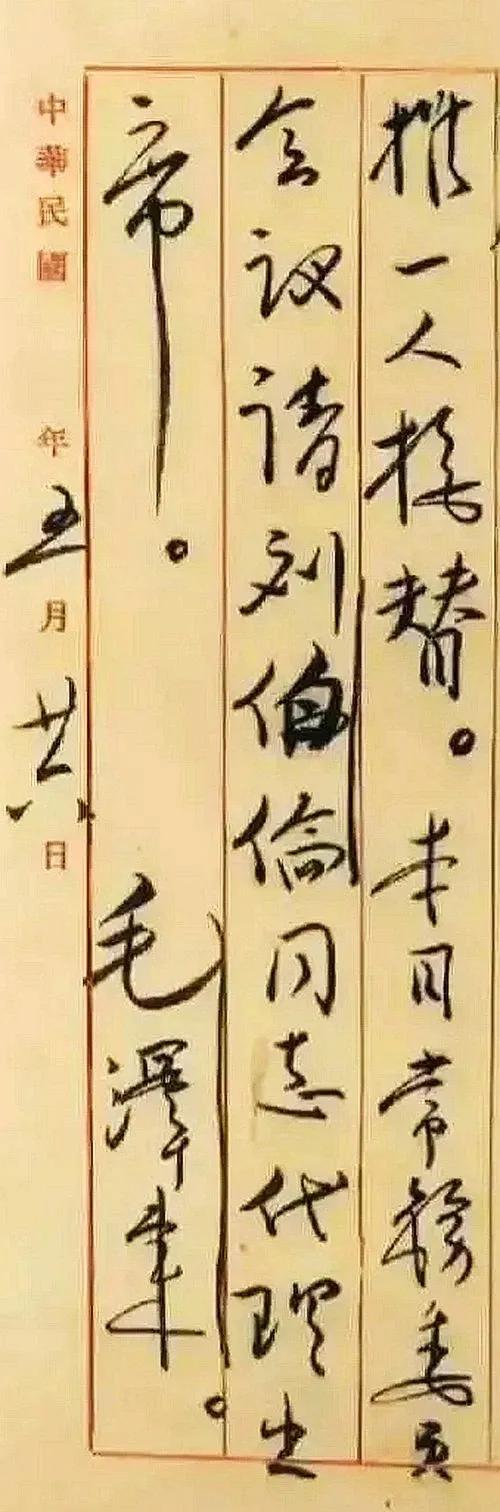 推一人接替。本日常務委員
会议请刘伯倫同志代理出
席。毛澤東。
中華民國 年五月廿六日